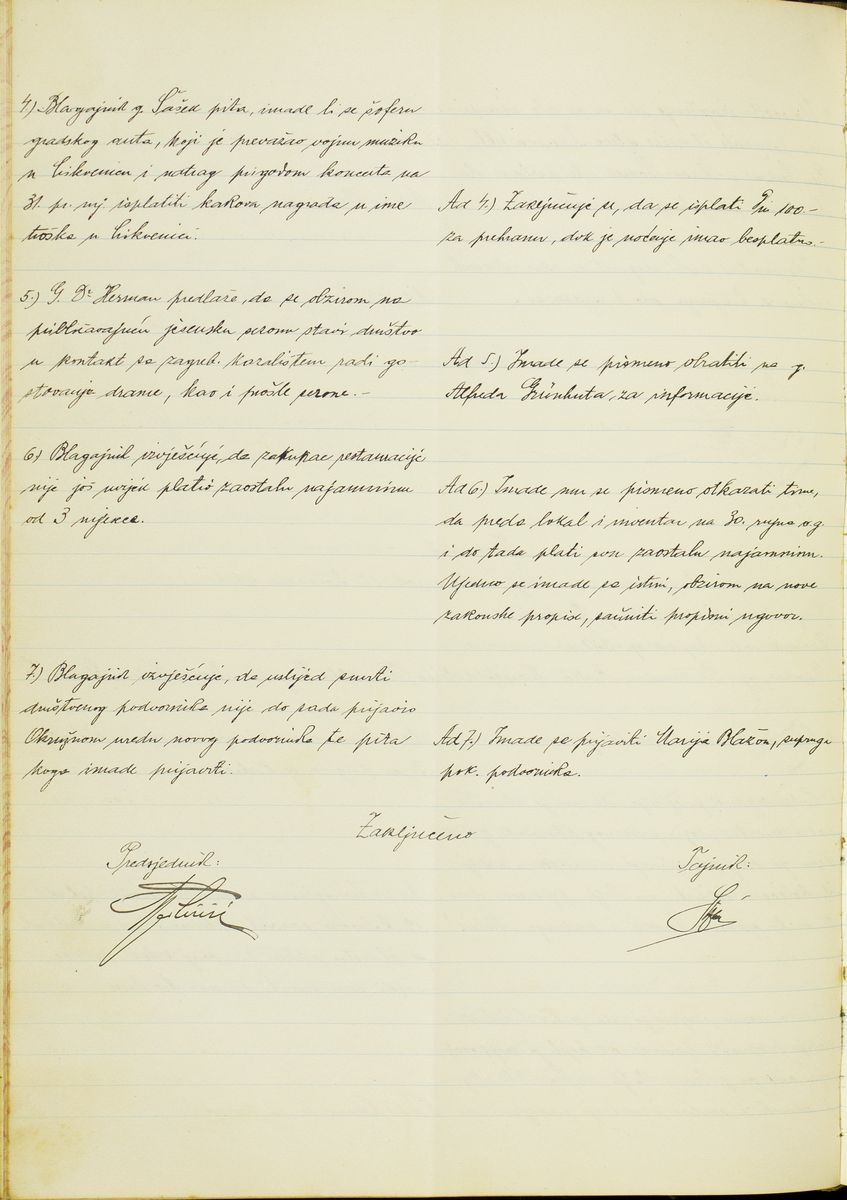 4.) Blagajnik g. Sašed pita, imade li se šoferu
gradskog auta, koji je prevažao vojnu muziku
u Crikvenicu i natrag prigodom koncerta na
31. pr. mj. isplatiti kakova nagrada u ime
troška u Crikvenici.
Ad 4.) Zaključuje se, da se isplati Din 100-
za prehranu, dok je noćenje imao besplatno.-
5.) G. Dr. Herman predlaže, da se obzirom na
približavajuću jesensku sezonu stavi društvo
u kontakt sa zagreb. kazalištem radi go-
stovanja drame, kao i prošle sezone.-
Ad 5.) Imade se pismeno obratiti na g.
Alfreda Grünhuta, za informacije.
6.) Blagajnik izvješćuje, da zakupac restauracije
nije još uvijek platio zaostalu najamninu
od 3 mjeseca.
Ad 6.) Imade mu se pismeno otkazati time,
da preda lokal i inventar na 30. rujna o.g.
i do tada plati svu zaostalu najamninu.
Ujedno se imade sa istim, obzirom na nove
zakonske propise, sačiniti propisni ugovor.
7.) Blagajnik izvješćuje, da uslijed smrti
društvenog podvornika nije do sada prijavio
Okružnom uredu novog podvornika te pita
koga imade prijaviti.
Ad 7.) Imade se prijaviti Marija Blažon, supruga
pok. podvornika.
Zaključeno
Predsjednik:
Tajnik: